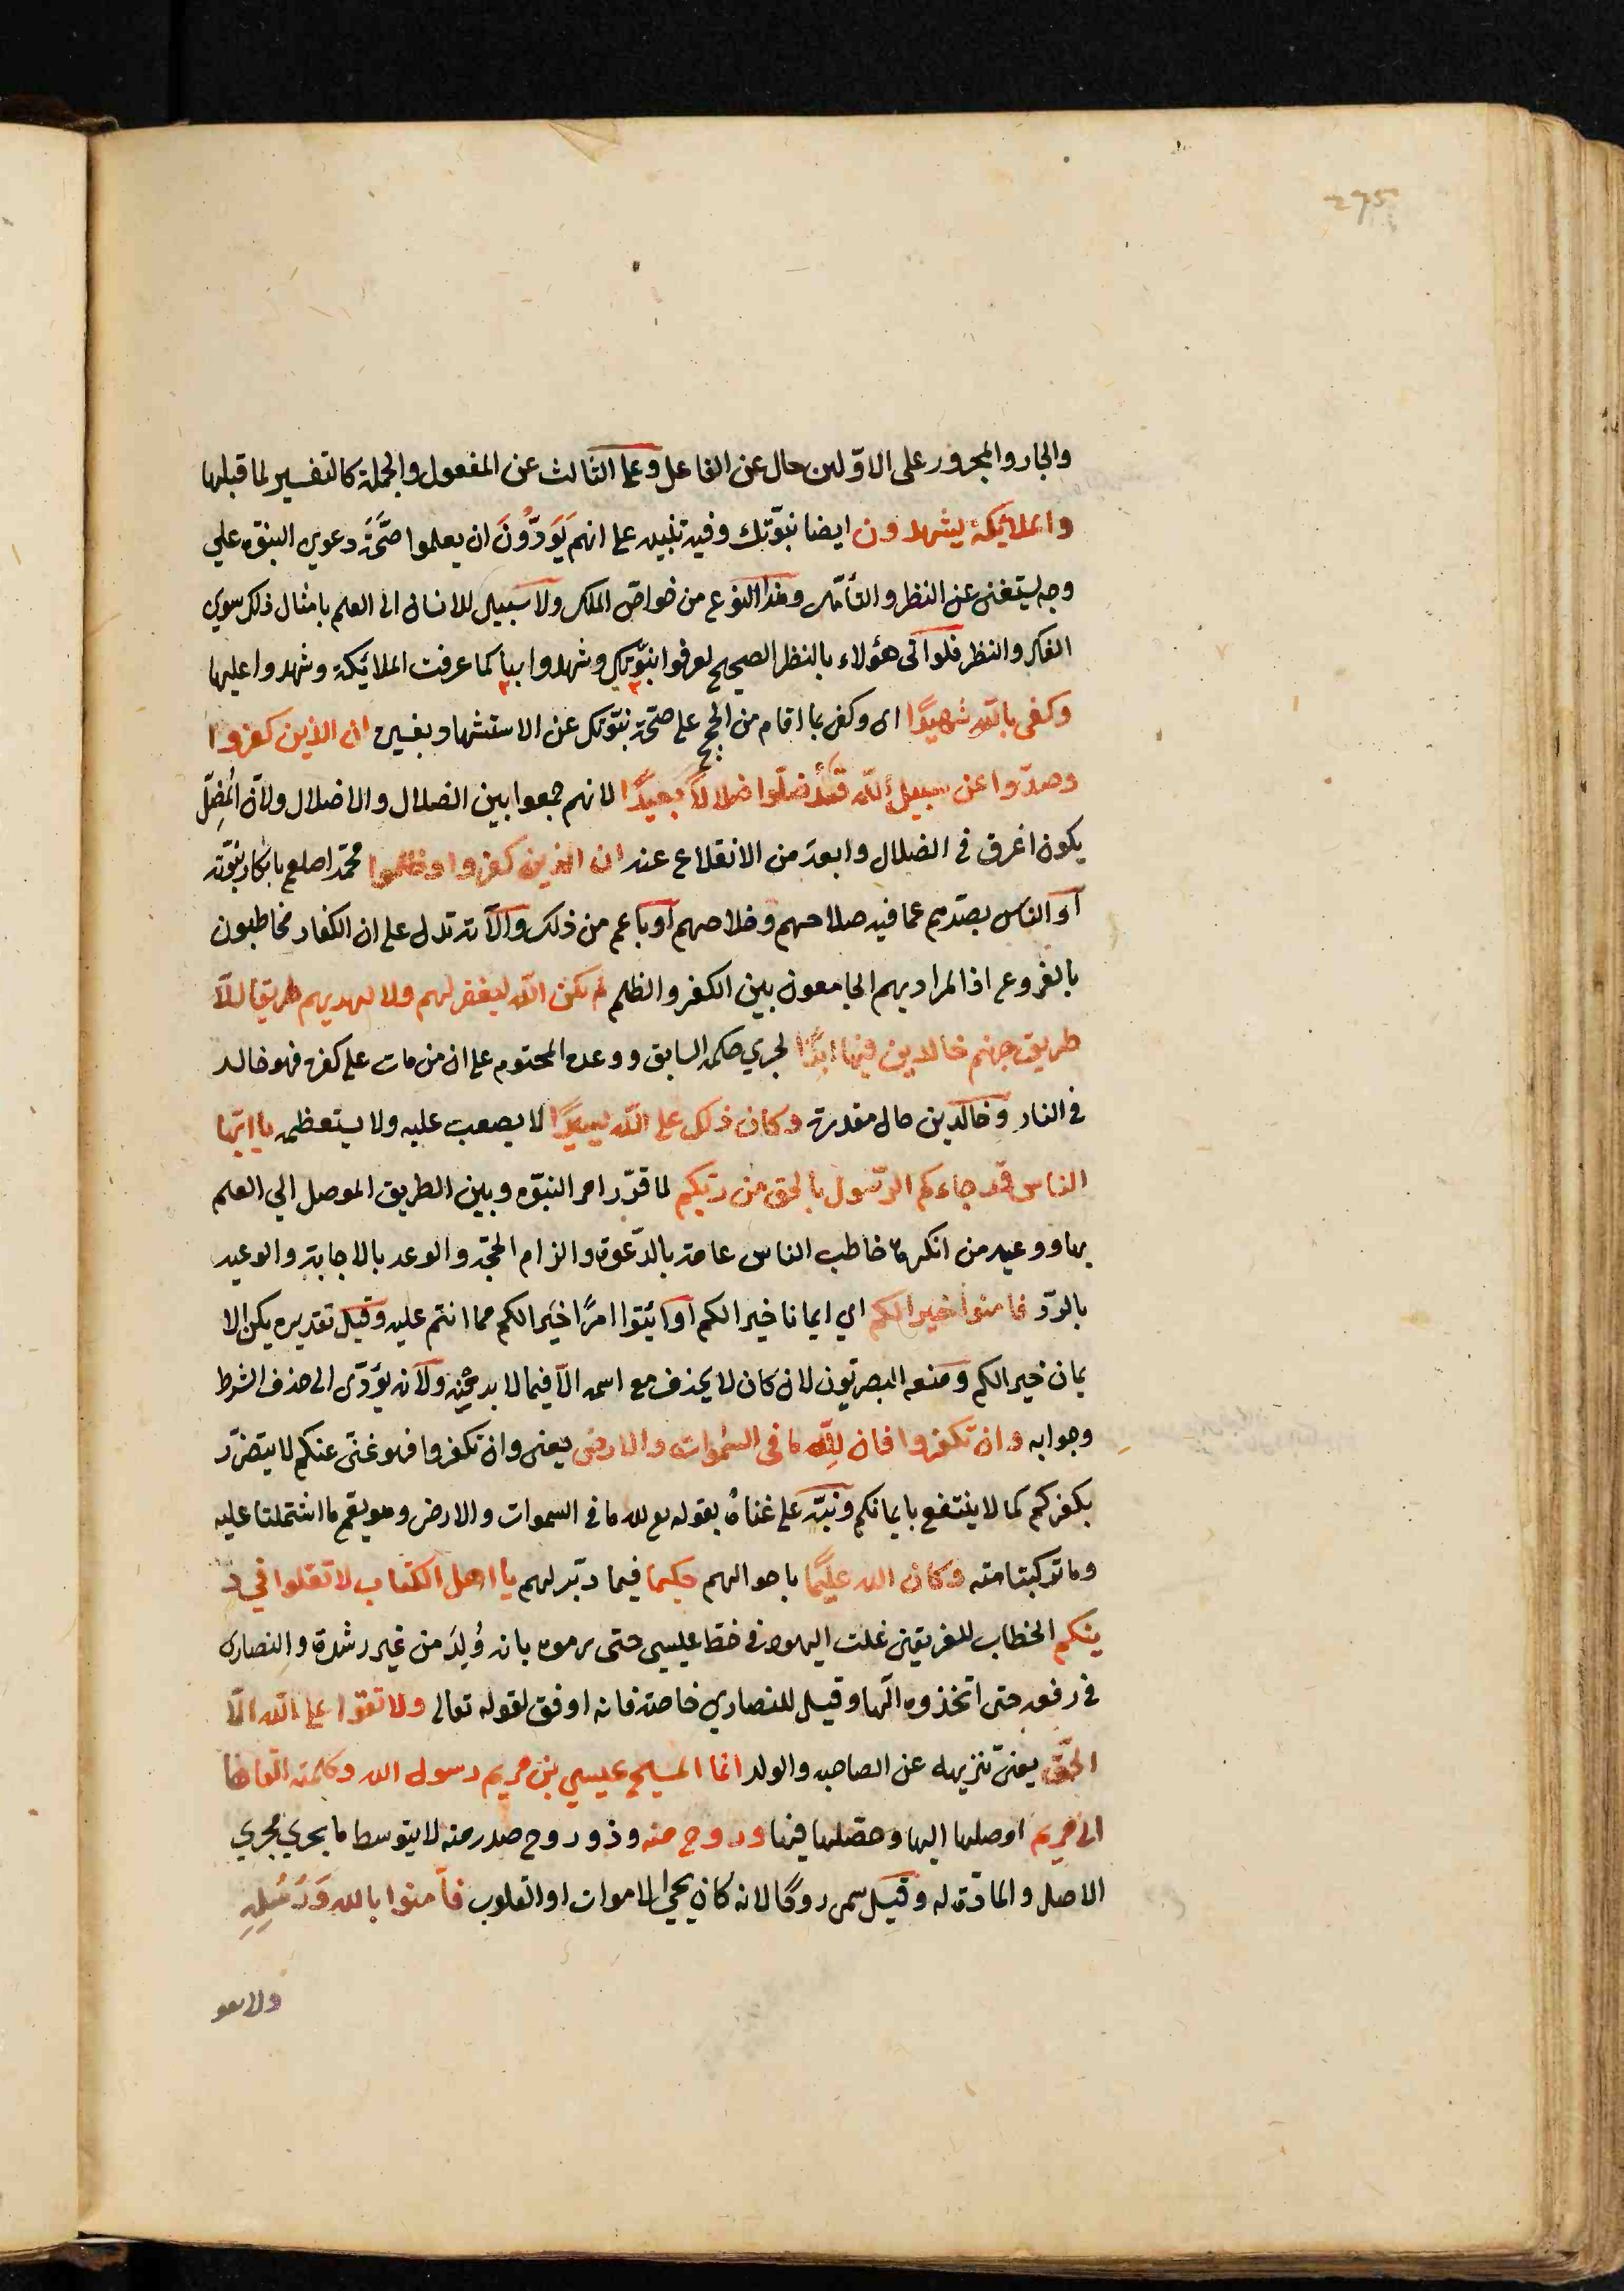 275
والجار والمجرور على الاوّلين حال عن الفاعل وعلى الثالث عن المفعول والجملة كالتفسير لما قبلها
والملايكة يشهدون ايضا نبوّتك وفيه تنبيه على انهم يَوَدُّونَ ان يعلموا صحَّةَ دعوي النبوّه علي
وجه يستغنى عن النظر والتأمّل وهذا النوع من خواصّ الملك ولا سبيل للانسان الى العلم بامثال ذلك سوي
الفكر والنظر فلو اتى هؤلاء بالنظر الصحيح لعرفوا نبوّتك وشهدوا بها كما عرفت الملائكة وشهدوا عليها
وكفى بالله شهيدًا اى وكفى بما اقام من الحجج على صحّة نبوّتك عن الاستشهاد بغيره ان الذين كفروا
وصدّوا عن سبيل الله قَدْ ضلّوا ضلالاً بعيدًا لانهم جمعوا بين الضلال والاضلال ولانّ المُضِلّ
يكون اغرق فى الضلال وابعدَ من الانقلاع عنه ان الذين كفروا وظلموا محمّدا صلعم بانكار نبوّته
او الناس بصدّهم عما فيه صلاحهم وخلاصهم او باعم من ذلك والآية تدل على ان الكفار مخاطبون
بالفروع اذ المراد بهم الجامعون بين الكفر والظلم لم يكن الله ليغفر لهم ولا ليهديهم طريقا الاّ
طريق جهنم خالدين فيها ابدًا لجري حكمه السابق ووعده المحتوم على ان من مات على كفره فهو خالد
فى النار وخالدين حال مقدرة وكان ذلك على الله يسيرًا لا يصعب عليه ولا يستعظمه يا ايّها
الناس قد جاءكم الرّسول بالحق من ربّكم لما قرّر امر النبوّه وبين الطريق الموصل الي العلم
بها ووعيد من انكرها خاطب الناس عامة بالدّعوة والزام الحجّة والوعد بالاجابة والوعيد
بالردّ فامنوا خيرا لكم اي ايمانا خيرا لكم او ائتوا امرًا خيرا لكم مما انتم عليه وقيل تقديره يكن الا
يمان خيرا لكم ومنعه البصريّون لان كان لا يحذف مع اسمه الاّ فيما لابد منه ولانه يؤدّى الى حذف الشرط
وجوابه وان تكفروا فان لِلّه ما فى السّموات والارض يعنى وان تكفروا فهو غنىّ عنكم لا يتضرّر
بكفركم كما لا ينتفع بايمانكم ونبّه على غناهُ بقوله لله ما فى السموات والارض وهو يعم ما اشتملتا عليه
وما تركبتا منه وكان الله عليمًا باحوالهم حكيما فيما دبّر لهم يا اهل الكتاب لا تغلوا في د
ينكم الخطاب للفريقين غلت اليهود فى حطّ عيسى حتى رموه بانه وُلِدَ من غير رشدة والنصارى
فى رفعه حتى اتخذوه الها وقيل للنصاري خاصة فانه اوفق لقوله تعالى ولا تقولوا على الله الاّ
الحقّ يعنى تنزيهه عن الصاحبه والولد انما المسيح عيسي بن مريم رسول الله وكلمته القاها
الى مريم اوصلها اليها وحصّلها فيها وروح منه وذو روح صدر منه لا بتوسط ما يجري مجري
الاصل والمادّة له وقيل سمى روحًا لانه كان يحيى الاموات او القلوب فآمنوا بالله وَرُسُلِهِ